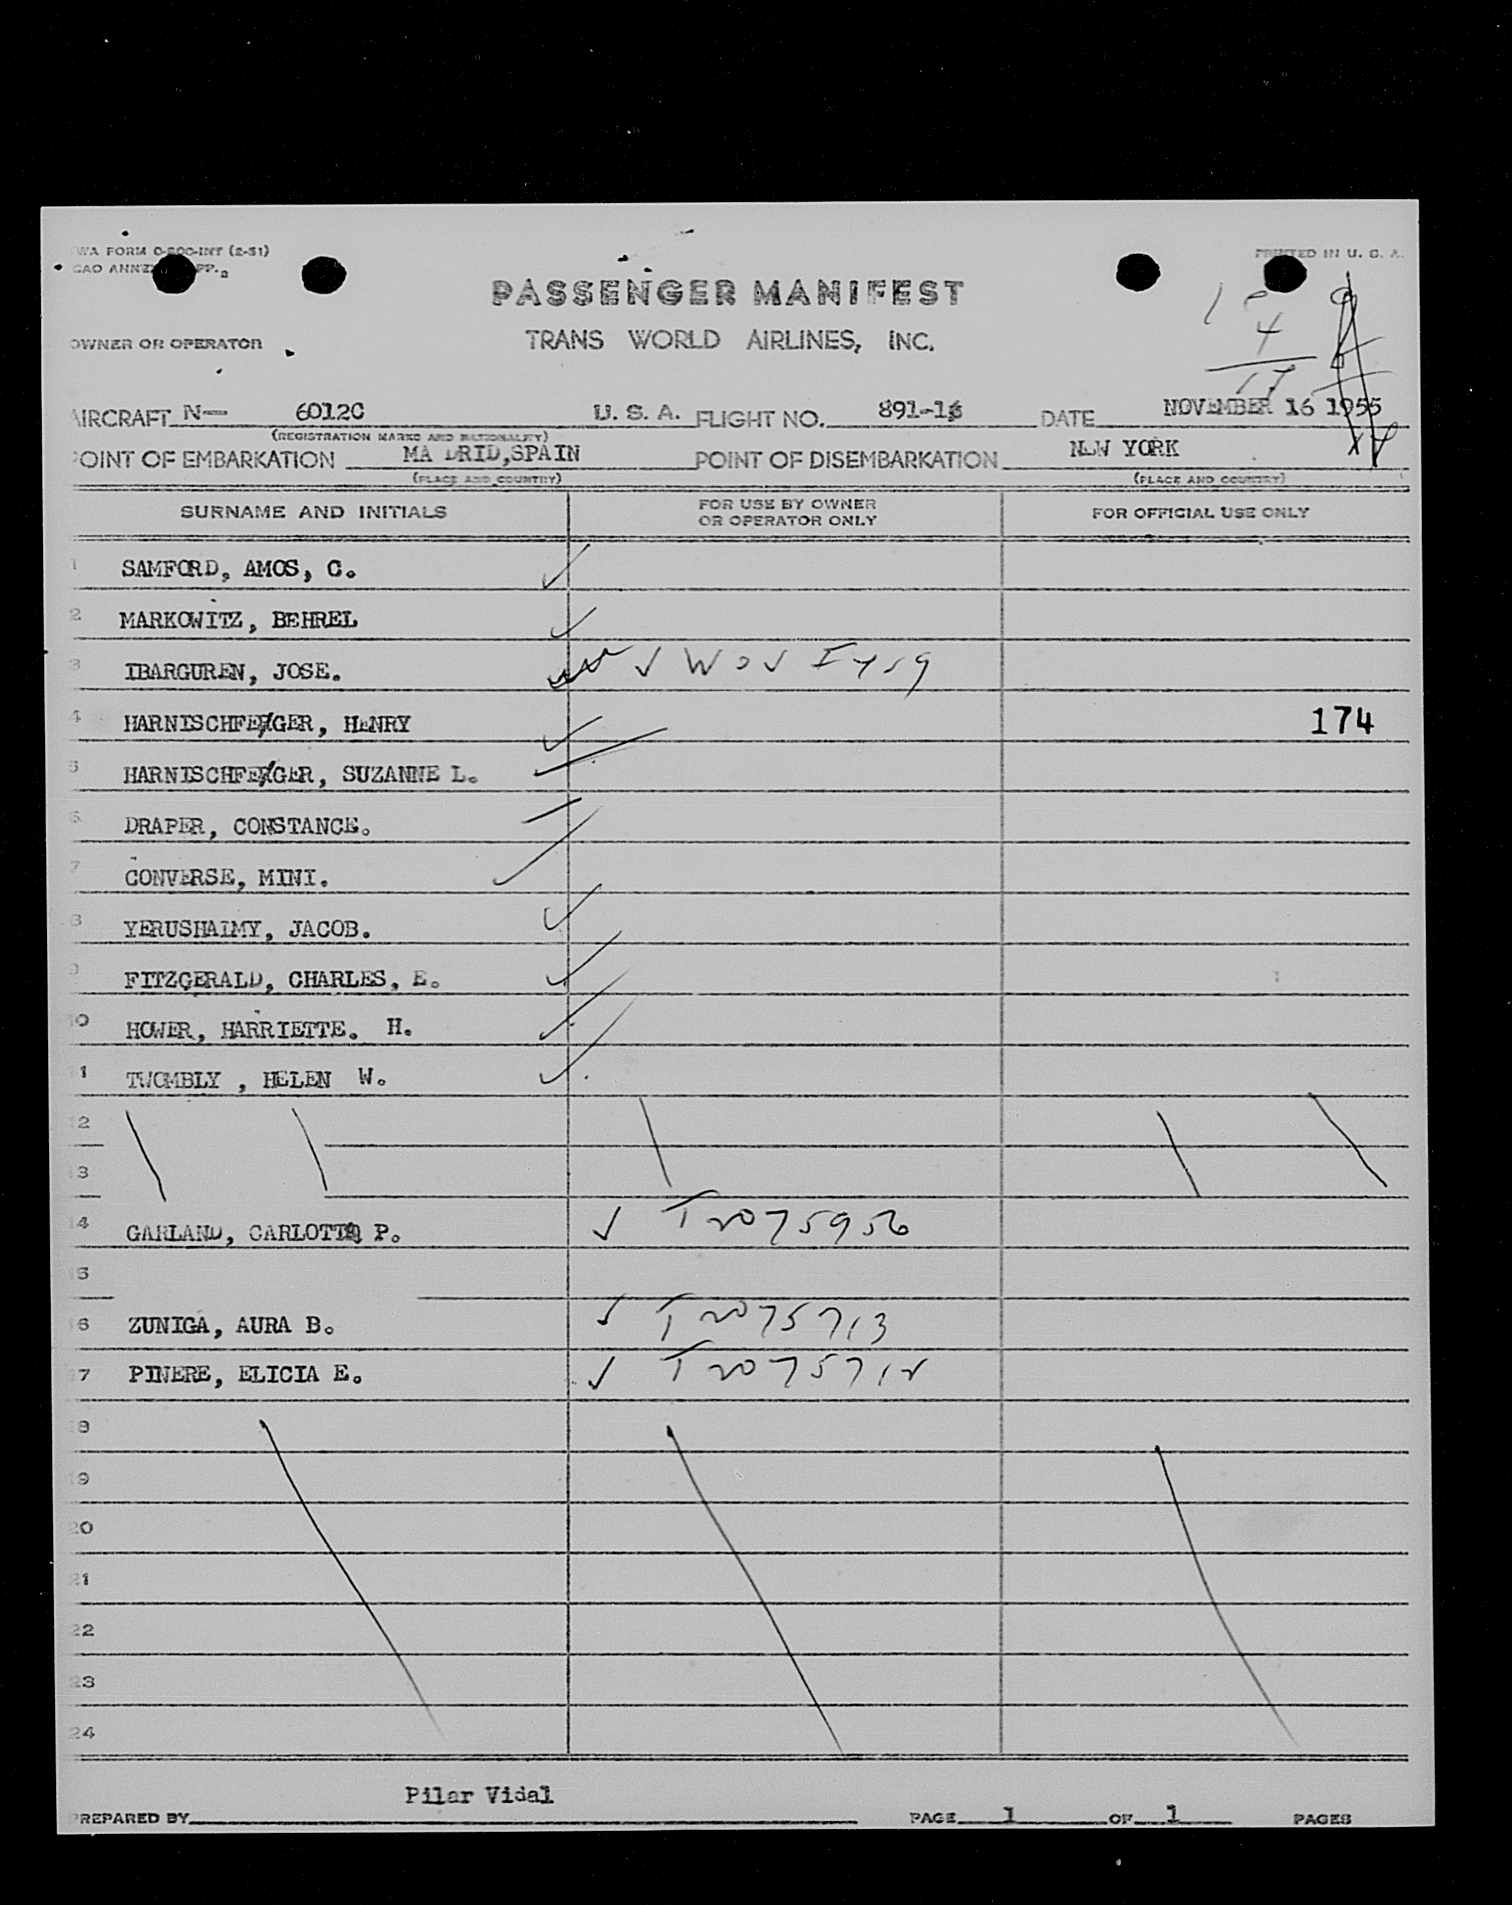 WA FORM O-200-INT (2-51)
PRINTED IN U. S. A.
PASSENGER MANIFEST
OWNER OR OPERATOR
TRANS WORLD AIRLINES, INC.
4
17
AIRCRAFT N- 6012C U. S. A. FLIGHT NO. 891-16 DATE NOVEMBER 16 1955
(REGISTRATION MARKS AND NATIONALITY)
POINT OF EMBARKATION MA DRID,SPAIN POINT OF DISEMBARKATION NEW YORK
(PLACE AND COUNTRY) (PLACE AND COUNTRY)
SURNAME AND INITIALS FOR USE BY OWNER OR OPERATOR ONLY FOR OFFICIAL USE ONLY
1 SAMFORD, AMOS, C.
2 MARKOWITZ, BEHREL
3 IBARGUREN, JOSE.
4 HARNISCHFEGER, HENRY 174
5 HARNISCHFEGER, SUZANNE L.
6 DRAPER, CONSTANCE.
7 CONVERSE, MINI.
8 YERUSHALMY, JACOB.
9 FITZGERALD, CHARLES, E.
10 HOWER, HARRIETTE. H.
11 TWOMBLY , HELEN W.
12
13
14 GARLAND, CARLOTTA P. T2075956
15
16 ZUNIGA, AURA B. T2075713
17 PINERE, ELICIA E. T2075712
18
19
20
21
22
23
24
Pilar Vidal
PREPARED BY PAGE 1 OF 1 PAGES